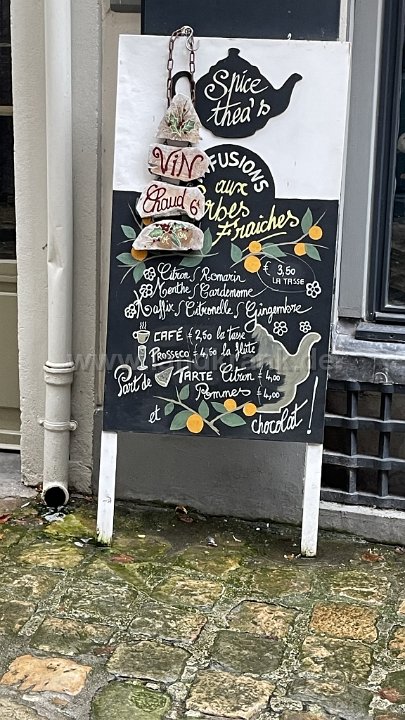 Spice
théa's
VIN
Chaud 6€
INFUSIONS
aux
Herbes
Fraîches
Citron / Romarin
Menthe / Cardenome
Kaffir / Citronelle / Gingembre
€ 3,50
LA TASSE
CAFÉ €2,50 la tasse
PROSSECO €4,50 la flûte
Part de TARTE Citron €4,00
Pommes €4,00
et chocolat!